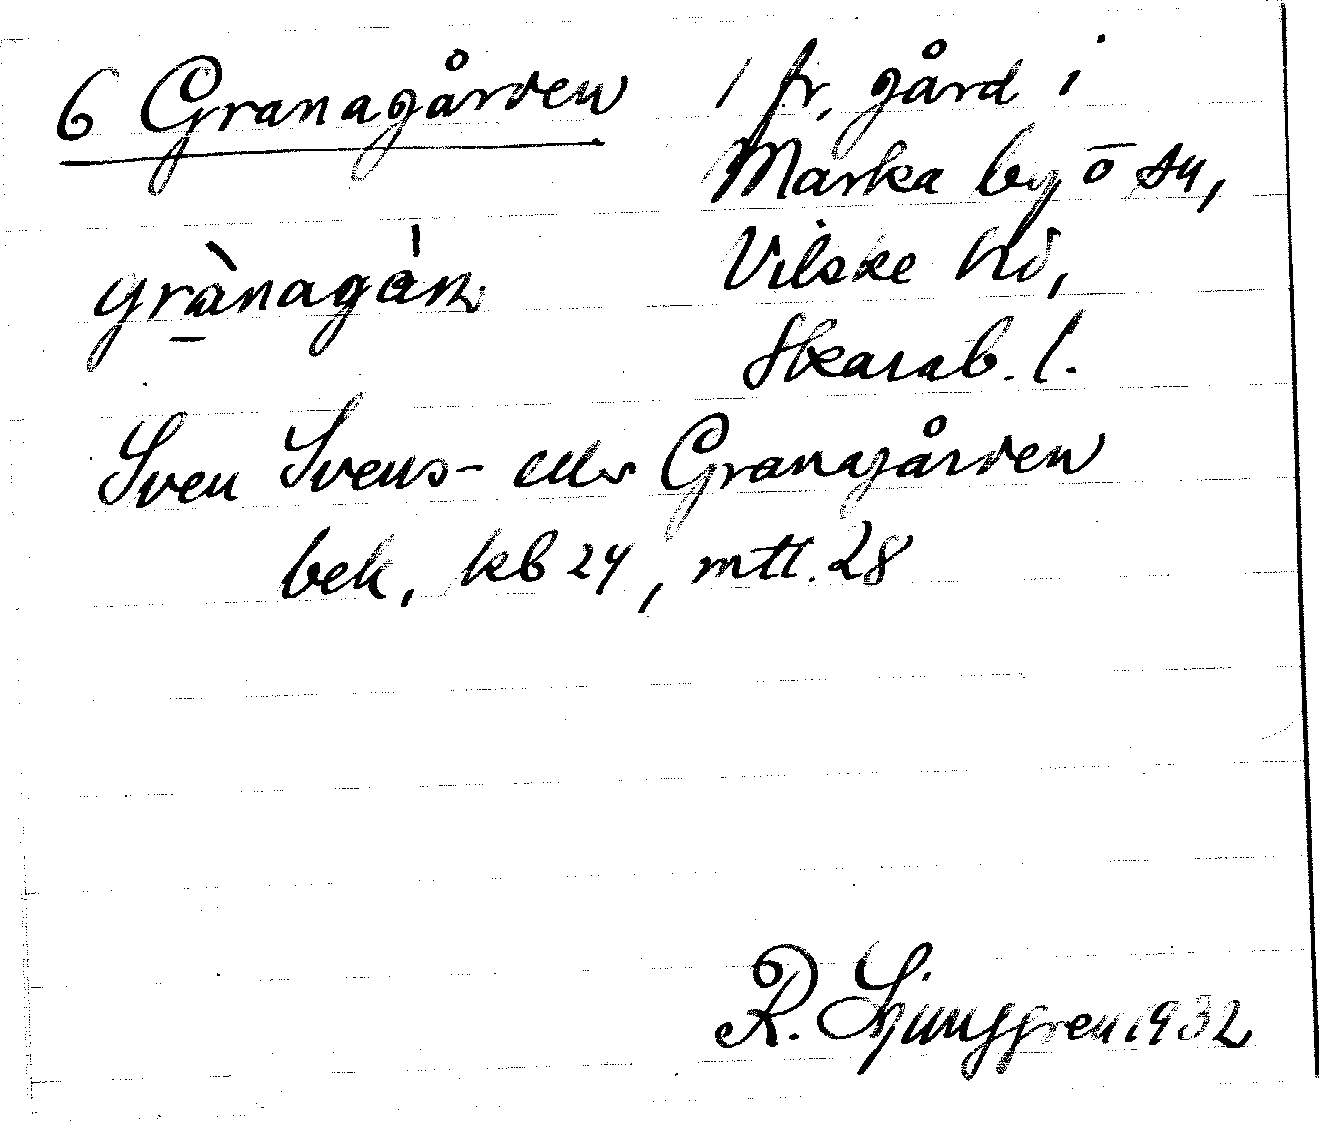 6 Granagården
1 fr. gård i
Marka by o sn,
Vilske hd,
Skarab. l.
grànagån.
Sven Svens- eller Granagården
bek, kb 24, mtl. 28
R. Ljunggren 1932